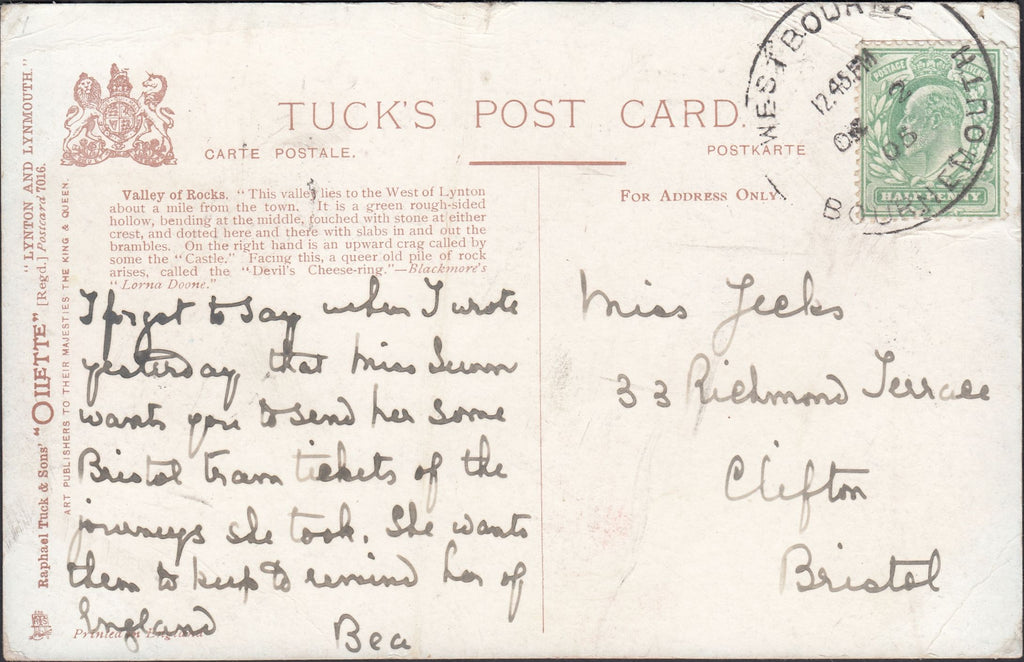 TUCK'S POST CARD
CARTE POSTALE.
POSTKARTE
Valley of Rocks. "This valley lies to the West of Lynton
about a mile from the town. It is a green rough-sided
hollow, bending at the middle, touched with stone at either
crest, and dotted here and there with slabs in and out the
brambles. On the right hand is an upward crag called by
some the "Castle." Facing this, a queer old pile of rock
arises, called the "Devil's Cheese-ring."—Blackmore's
"Lorna Doone."
I forgot to say when I wrote
yesterday that Miss
wants you to send her some
Bristol tram tickets of the
journeys she took. She wants
them to keep to remind her of
England
Bea
Printed in England
For Address Only
Miss Jecks
33 Richmond Terrace
Clifton
Bristol
WESTBOURNE
BOURNEMOUTH
12.45 PM
2
05
POSTAGE
HALFPENNY
"LYNTON AND LYNMOUTH."
Raphael Tuck & Sons' "OILETTE" [Regd.] Postcard 7016.
ART PUBLISHERS TO THEIR MAJESTIES THE KING & QUEEN.